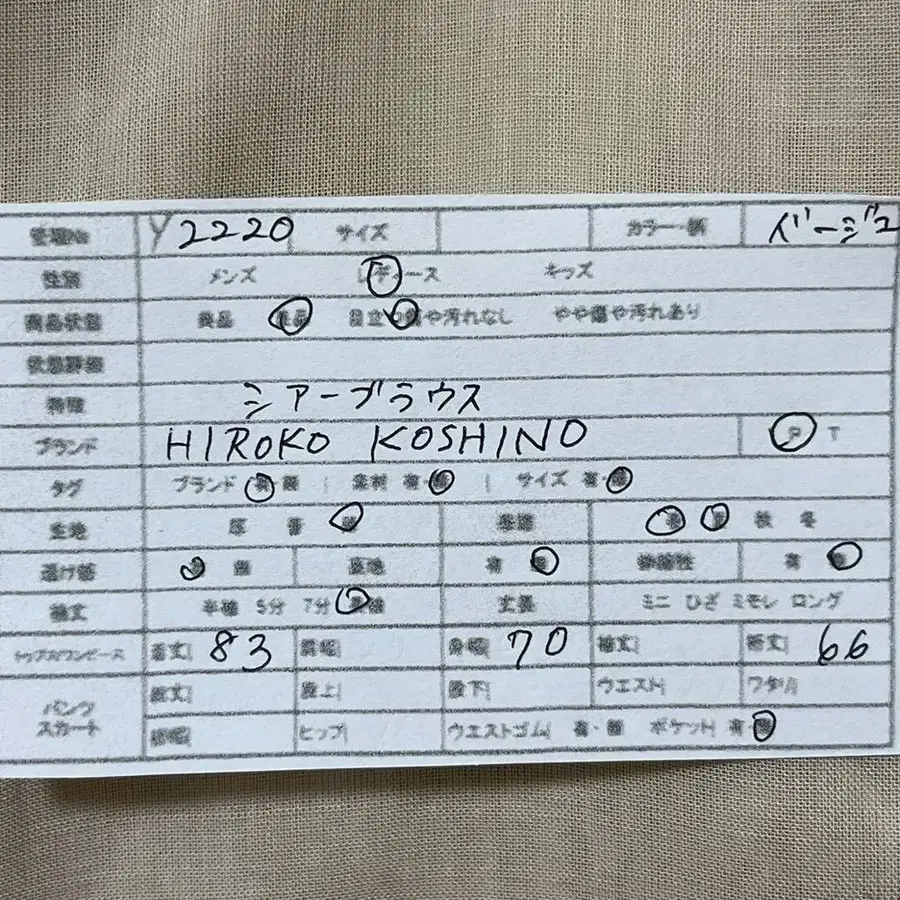 管理No Y2220 サイズ カラー・柄 ベージュ
性別 メンズ レディース キッズ
商品状態 美品 良品 目立つ傷や汚れなし やや傷や汚れあり
状態詳細
特徴 シアーブラウス
ブランド HIROKO KOSHINO P T
タグ ブランド 有 無 | 素材 有・無 | サイズ 有・無
生地 厚 普 薄 季節 春 夏 秋 冬
透け感 有 無 裏地 有 無 伸縮性 有 無
袖丈 半袖 5分 7分 長袖 丈長 ミニ ひざ ミモレ ロング
トップス/ワンピース 着丈 83 肩幅 身幅 70 袖丈 裄丈 66
パンツ スカート 総丈 股上 股下 ウエスト ワタリ
裾幅 ヒップ ウエストゴム 有・無 ポケット 有・無